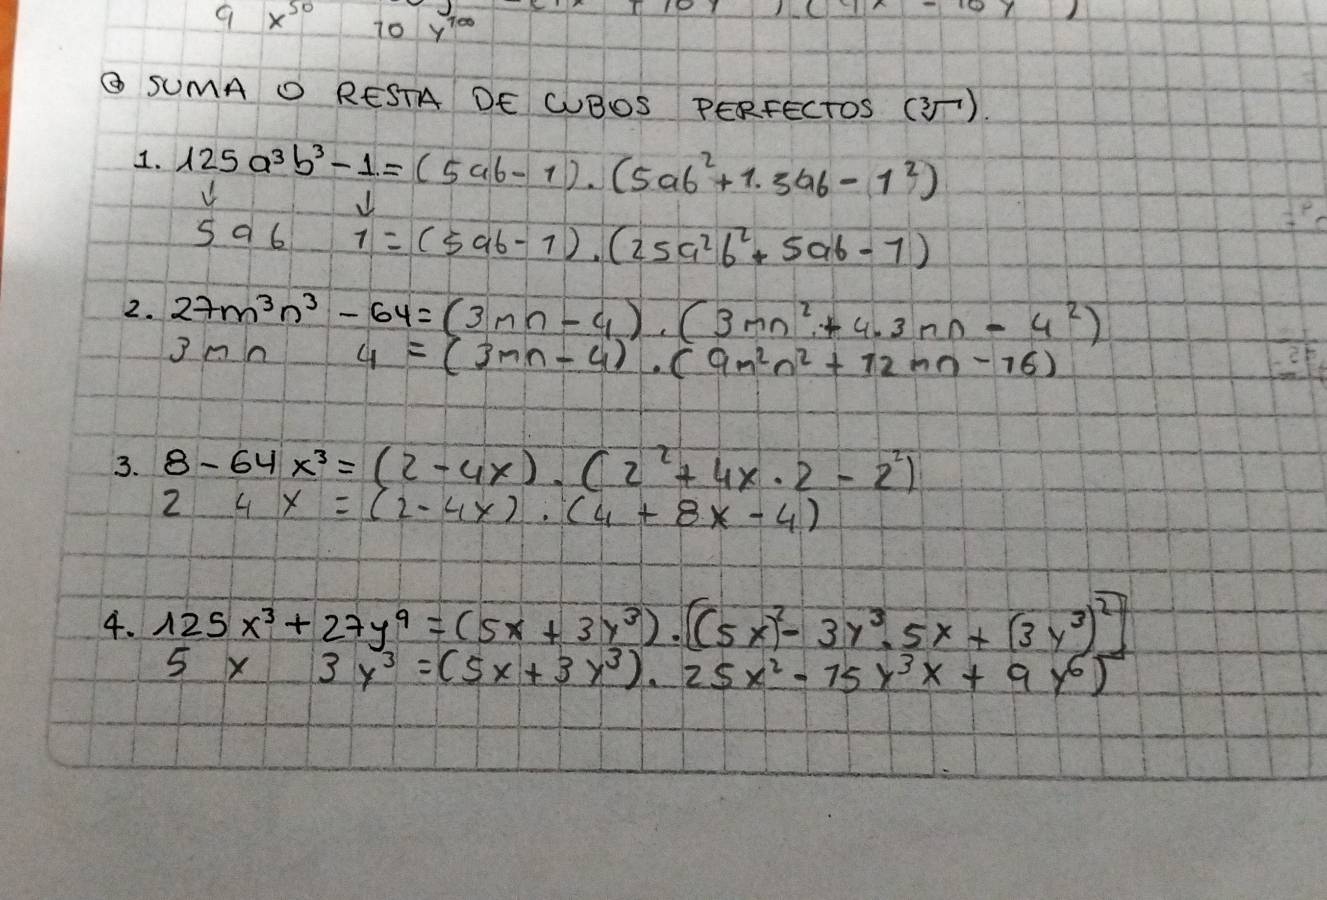 9 x⁵⁰ 10 y¹⁰⁰
③ SUMA O RESTA DE CUBOS PERFECTOS (∛).
1. 125a³b³ - 1 = (5ab - 1) . (5ab² + 1.5ab - 1²)
↓ ↓
5ab 1 = (5ab - 1) . (25a²b² + 5ab - 1)
2. 27m³n³ - 64 = (3mn - 4) . (3mn² + 4.3mn - 4²)
3mn 4 = (3mn - 4) . (9m²n² + 12mn - 16)
3. 8 - 64x³ = (2 - 4x) . (2² + 4x . 2 - 2²)
2 4x = (2 - 4x) . (4 + 8x - 4)
4. 125x³ + 27y⁹ = (5x + 3y³) . [(5x)² - 3y³ . 5x + (3y³)²]
5x 3y³ = (5x + 3y³) . 25x² - 15y³x + 9y⁶)